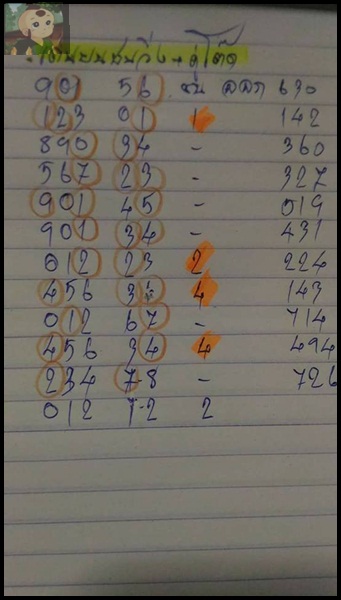 901 56 ชน ออก 630
123 01 1 142
890 34 - 360
567 23 - 327
901 45 - 019
901 34 - 431
012 23 2 224
456 34 4 143
012 67 - 714
456 34 4 494
234 78 - 726
012 1-2 2